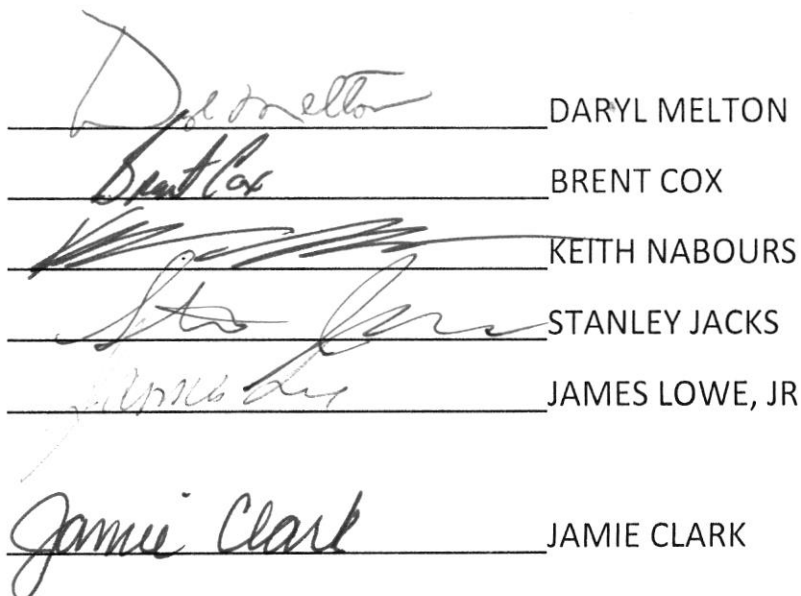 Melton DARYL MELTON
Brent Cox BRENT COX
KEITH NABOURS
STANLEY JACKS
James JAMES LOWE, JR
Jamie Clark JAMIE CLARK